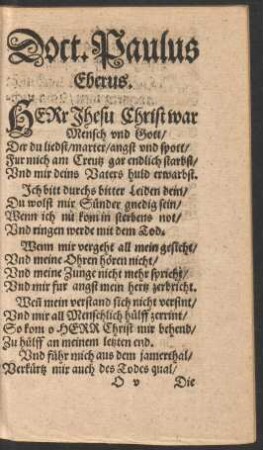 Doct. Paulus
Eberus.
HERr Jhesu Christ war
Mensch vnd Gott/
Der du liedst/marter/angst vnd spott/
Fur mich am Creutz gar endlich starbst/
Vnd mir deins Vaters huld erwarbst.
Ich bitt durchs bitter Leiden dein/
Du wolst mir Sünder gnedig sein/
Wenn ich nů kom in sterbens not/
Vnd ringen werde mit dem Tod.
Wenn mir vergeht all mein gesicht/
Vnd meine Ohren hören nicht/
Vnd meine Zunge nicht mehr spricht/
Vnd mir fur angst mein hertz zerbricht.
Weñ mein verstand sich nicht versint/
Vnd mir all Menschlich hülff zerrint/
So kom o HERR Christ mir behend/
Zu hülff an meinem letzten end.
Vnd führ mich aus dem jamerthal/
Verkürtz mir auch des Todes qual/
O v Die